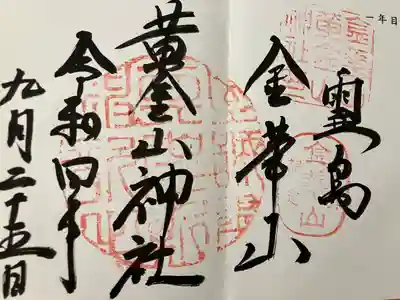 一年目
霊島
金華山
黄金山神社
令和四年
九月二十五日